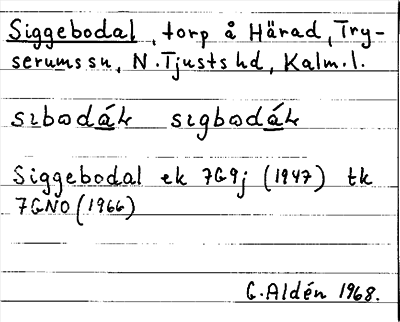 Siggebodal, torp å Härad, Try-
serums sn, N. Tjusts hd, Kalm. l.
Siggebodal ek 7G9j (1947) tk
7GNO (1966)
G. Aldén 1968.